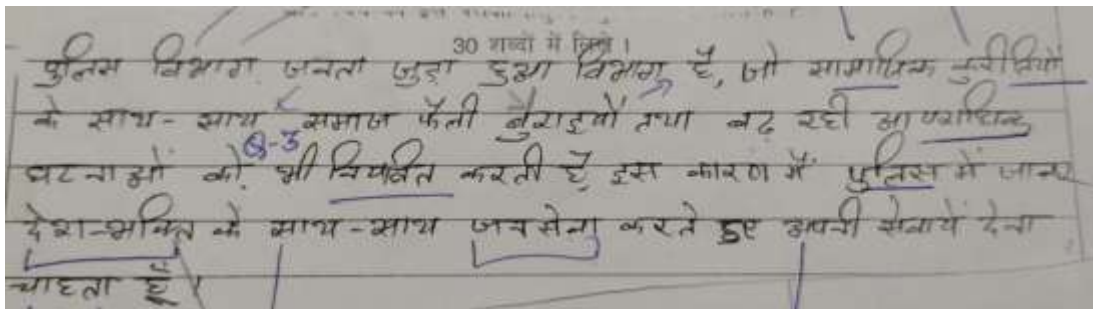 30 शब्दों में लिखें।
पुलिस विभाग जनता जुड़ा हुआ विभाग है, जो सामाजिक कुरीतियों
के साथ-साथ समाज फैली बुराइयों तथा बढ़ रही आपराधिक
Q-3
घटनाओं को भी नियंत्रित करती है, इस कारण मैं पुलिस में जाकर
देश-भक्ति के साथ-साथ जनसेवा करते हुए अपनी सेवायें देना
चाहता हूँ।